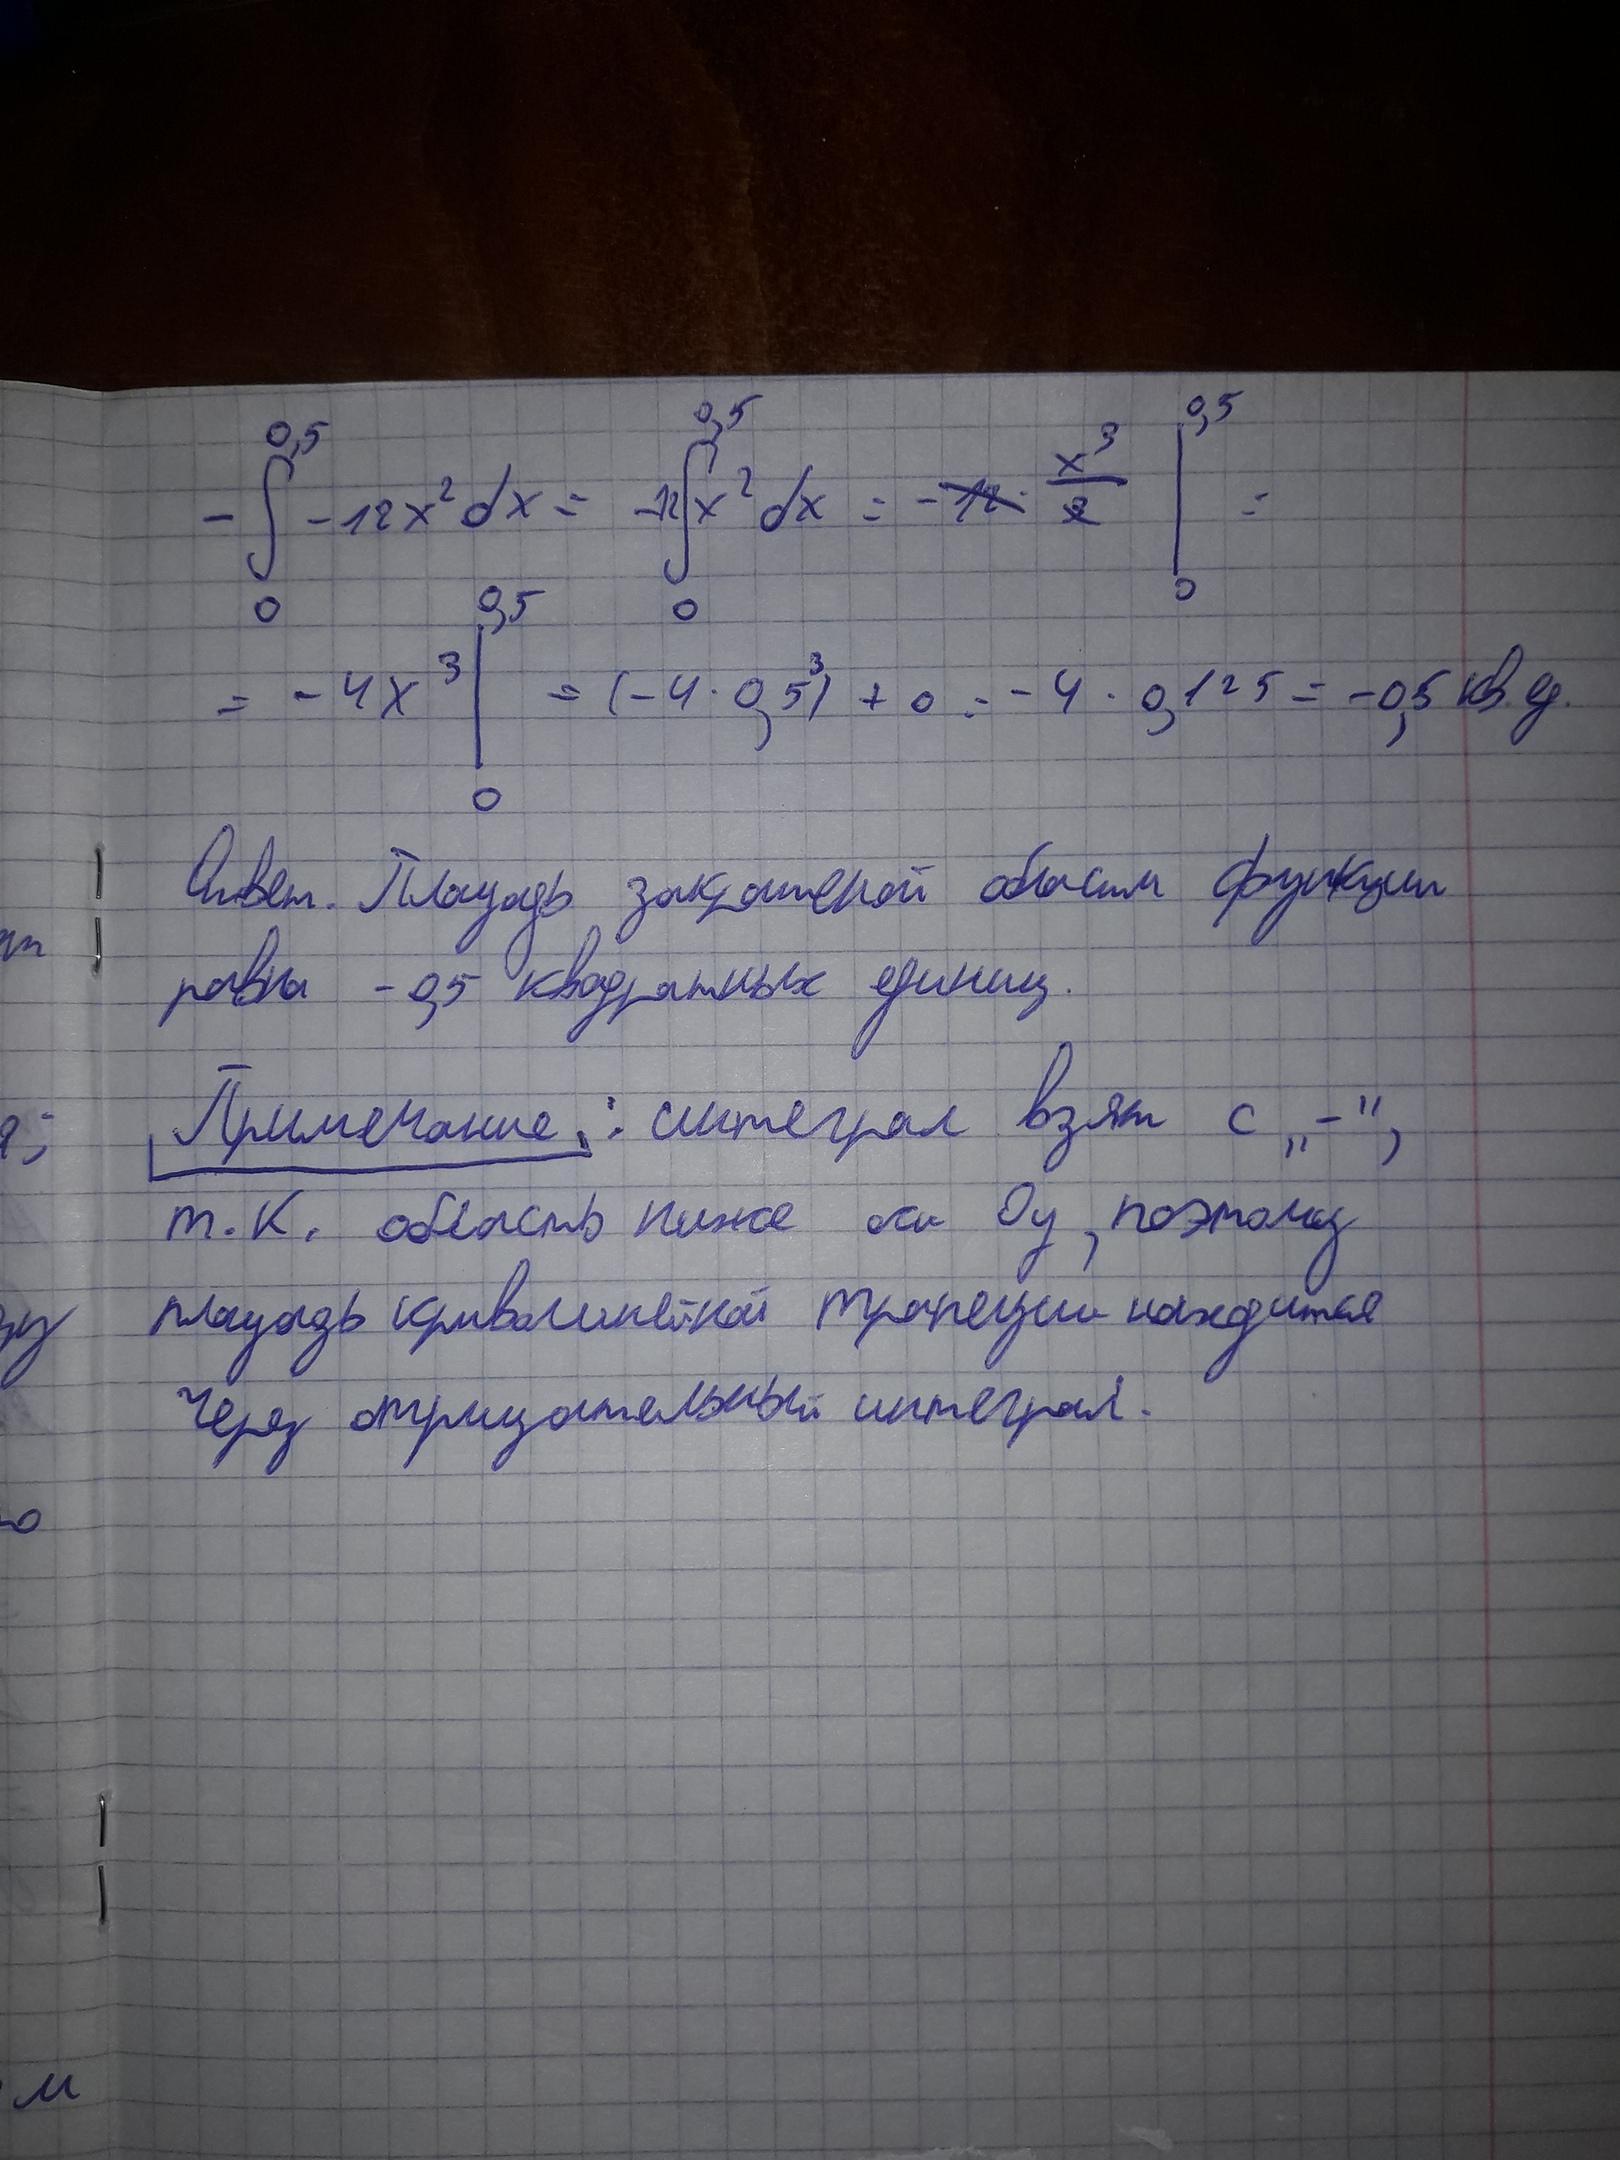 - ∫₀^0,5 -12x² dx = -12 ∫₀^0,5 x² dx = -12 · x³/3 |₀^0,5 =
= -4x³ |₀^0,5 = (-4 · 0,5³) + 0 = -4 · 0,125 = -0,5 кв.ед.
Ответ. Площадь закрашеной области функции
равна -0,5 квадратных единиц.
Примечание: интеграл взят с „-",
т.к. область ниже оси Оу, поэтому
площадь криволинейной трапеции находится
через отрицательный интеграл.